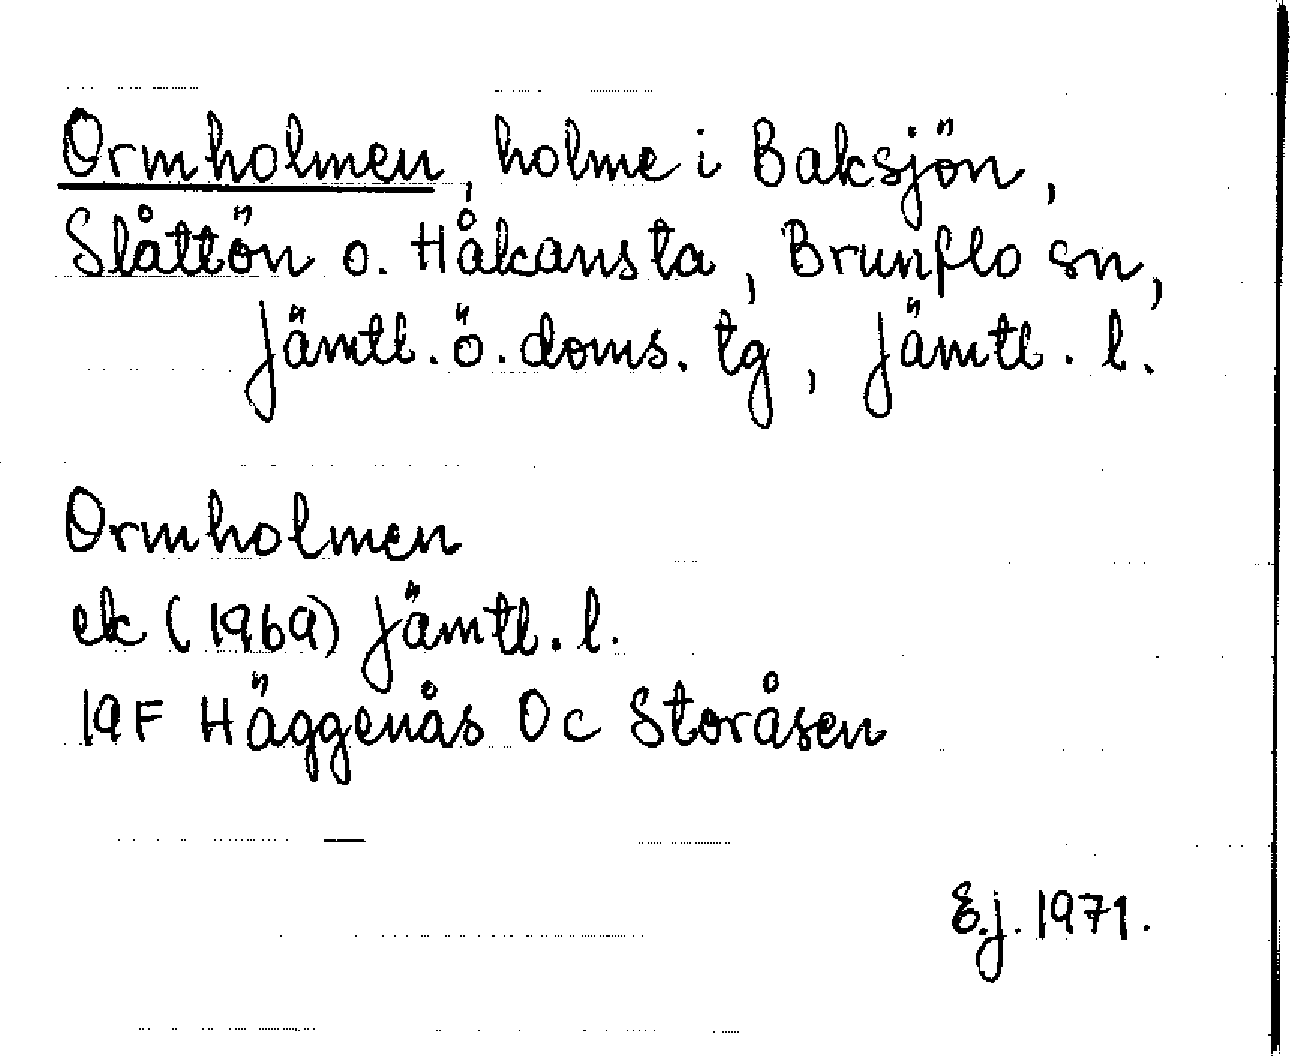 Ormholmen, holme i Baksjön,
Slåttön o. Håkansta, Brunflo sn,
Jämtl. ö. doms. tg, Jämtl. l.
Ormholmen
ek (1969) Jämtl. l.
19F Häggenås 0c Storåsen
E.j. 1971.